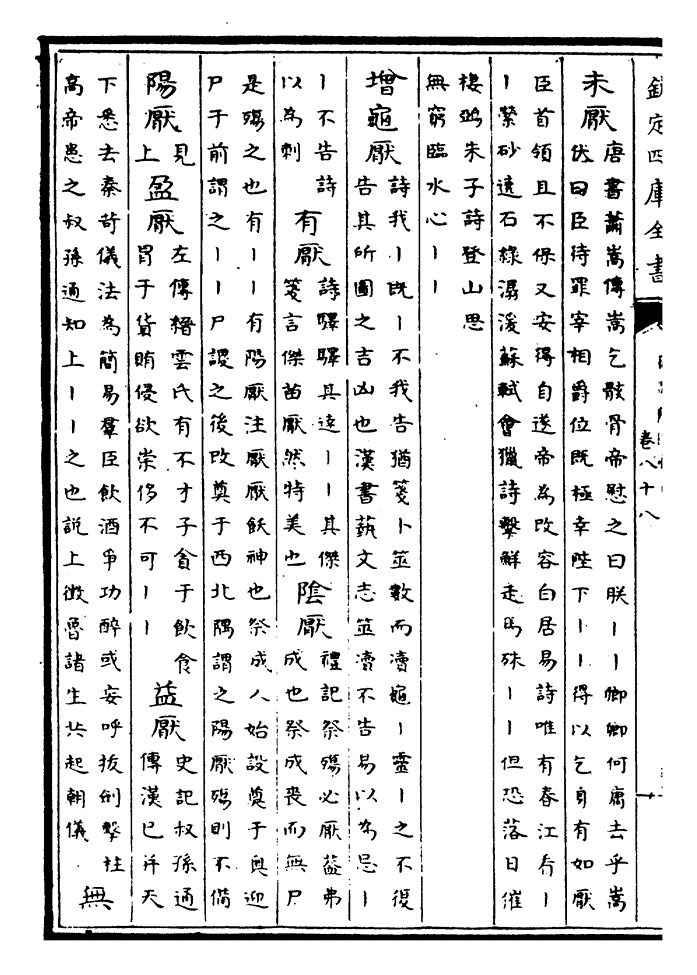 欽定四庫全書
卷八十八
未厭
唐書蕭嵩傳嵩乞骸骨帝慰之曰朕丨丨卿卿何庸去乎嵩
伏曰臣待罪宰相爵位既極幸陛下丨丨得以乞身有如厭
臣首領且不保又安得自遂帝為改容白居易詩唯有春江看丨
丨縈砂遶石綠潺湲蘇軾會獵詩擊鮮走馬殊丨丨但恐落日催
棲鴉朱子詩登山思
無窮臨水心丨丨
增龜厭
詩我丨既丨不我告猶箋卜筮數而瀆龜丨靈丨之不復
告其所圖之吉凶也漢書藝文志筮瀆不告易以為忌丨
丨不告詩
以為刺
有厭
詩驛驛其達丨丨其傑
箋言傑苗厭然特美也
陰厭
禮記祭殤必厭蓋弗
成也祭成喪而無尸
是殤之也有丨丨有陽厭注厭厭飫神也祭成人始設奠于奥迎
尸于前謂之丨丨尸謖之後改奠于西北隅謂之陽厭殤則不備
陽厭
見
上
盈厭
左傳縉雲氏有不才子貪于飲食
冒于貨賄侵欲崇侈不可丨丨
益厭
史記叔孫通
傳漢已并天
下悉去秦苛儀法為簡易羣臣飲酒爭功醉或妄呼拔劍擊柱
高帝患之叔孫通知上丨丨之也説上徵魯諸生共起朝儀
無